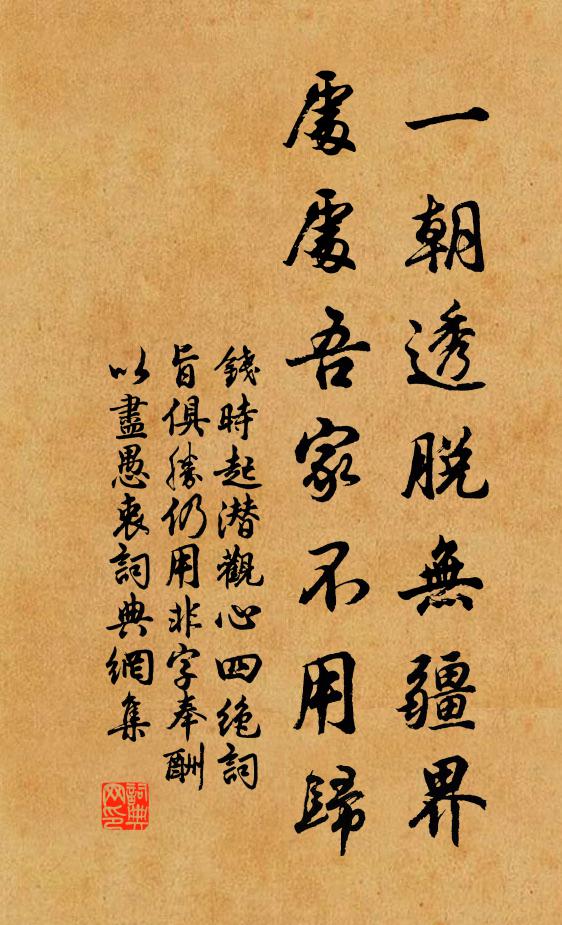 一朝透脱無疆界
處處吾家不用歸
錢時起潜觀心四絶詞
旨俱勝仍用非字奉酬
以盡愚衷詞典網集
詞典網印